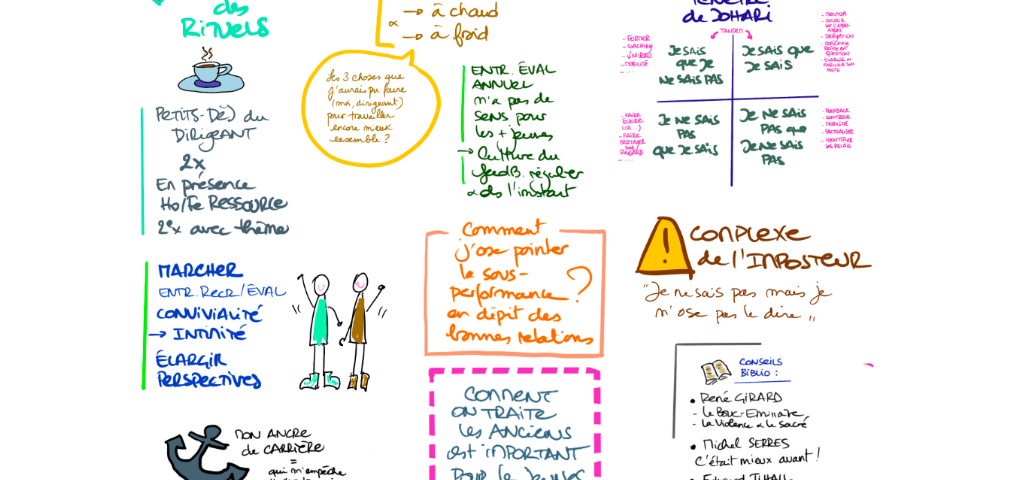 des
RITUELS
PETITS-DÈJ du
DIRIGEANT
2x
En présence
Ho/Fe RESSOURCE
2ex avec thème
MARCHER
ENTR. RECR/ÉVAL
CONVIVIALITÉ
→ INTIMITÉ
ÉLARGIR
PERSPECTIVES
MON ANCRE
de CARRIÈRE
=
qui m'empêche
→ à chaud
→ à froid
Les 3 choses que
j'aurais pu faire
(moi, dirigeant)
pour travailler
encore mieux
ensemble ?
ENTR. ÉVAL
ANNUEL
n'a pas de
sens pour
les + jeunes
→ Culture du
feedB. régulier
& ds l'instant
Comment
j'ose pointer
la sous-
performance
en dépit des
bonnes relations
?
COMMENT
ON TRAITE
les ANCIENS
est IMPORTANT
POUR les JEUNES
FENÊTRE
de JOHARI
TANDEM
- COACHING
- MOBILITÉ
JE SAIS
que JE
NE SAIS PAS
JE SAIS QUE
JE SAIS
- MENTOR
- DÉLÉGATION
JE NE SAIS
PAS
QUE JE SAIS
JE NE SAIS
PAS que
JE NE SAIS
PAS
- FAIRE
ÉCRIRE
- FAIRE
PARTAGER
SON
REGARD
- FEEDBACK
- MOBILITÉ
- IDENTIFIER
LES RELAIS
! COMPLEXE
de l'IMPOSTEUR
"Je ne sais pas mais je
n'ose pas le dire"
CONSEILS
BIBLIO :
• René GIRARD
- Le Bouc-Emissaire
- La Violence & le Sacré
• Michel SERRES
C'était mieux avant !